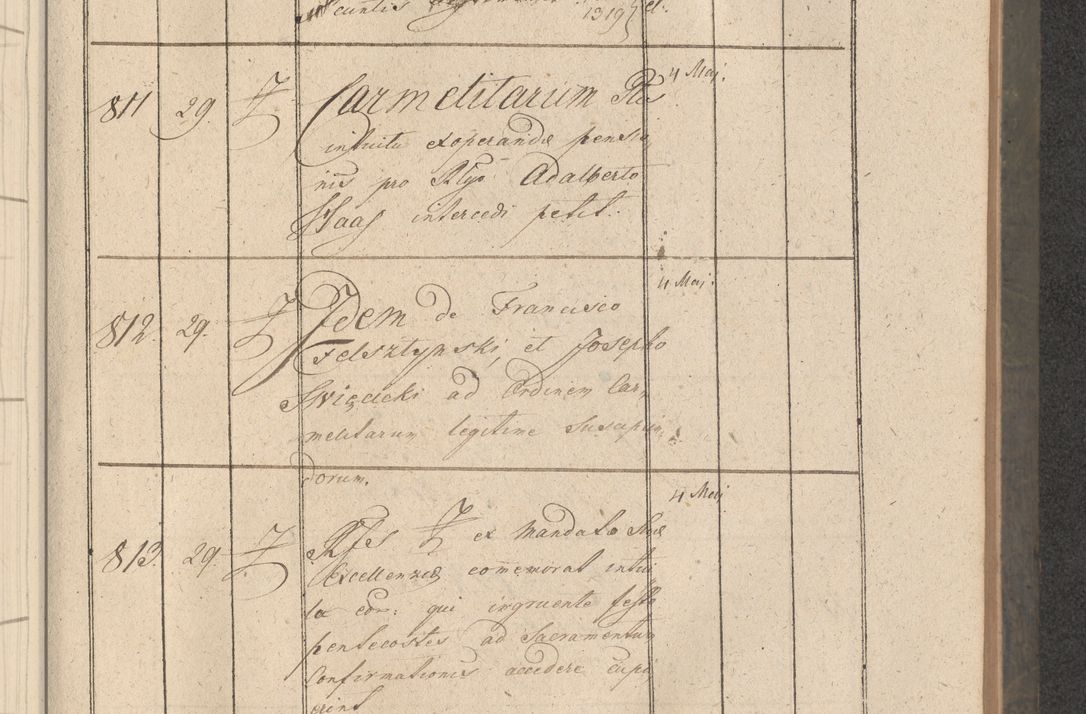 1319 et.
4 Maj.
811 29. Carmelitarum
intuitu exoperandae pensio
nis pro Rlgō Adalberto
Haas intercedi petit.
4 Maj.
812. 29. Idem de Francisco
Felsztynski, et Josepho
Swięcicki ad Ordinem Car
melitarum legitime Suscipien
dorum.
4 Maj
813. 29. ex Mandato Suae
Excellenzae comemorat intui
tu eor: qui ingruente festo
pentecostes ad Sacramentum
Confirmationis accedere cupi
erint